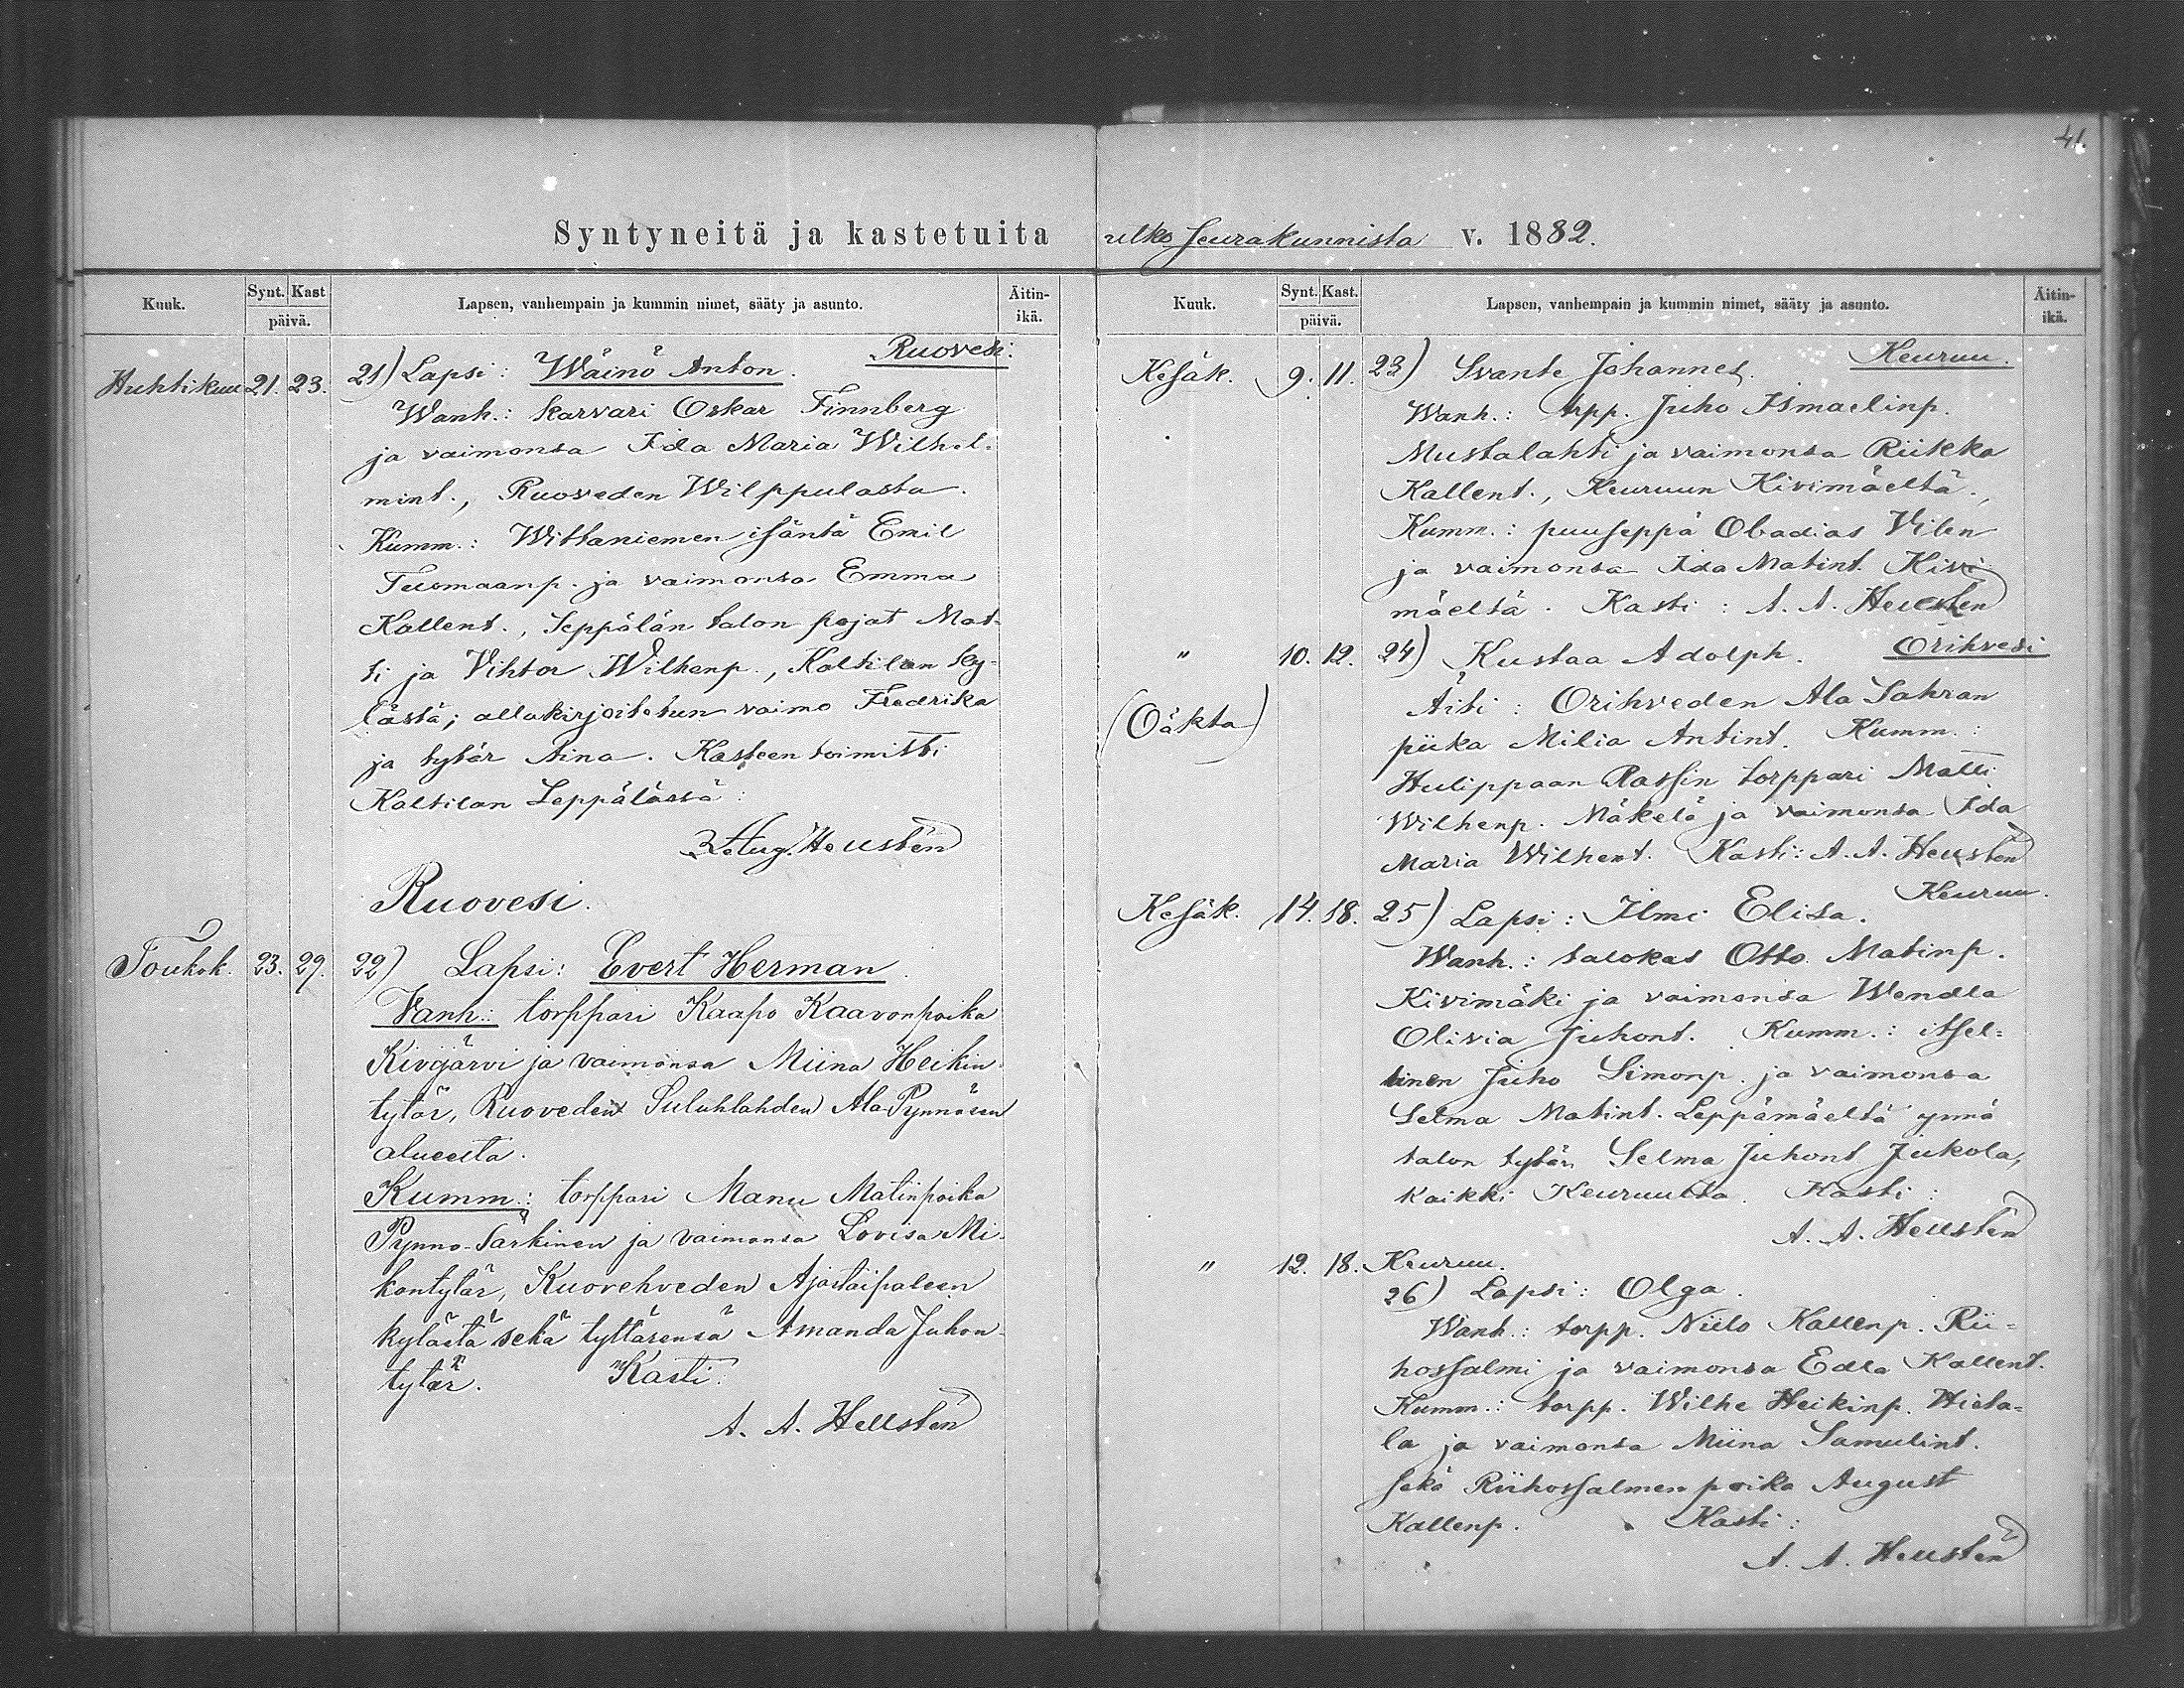 41.
Syntyneitä ja kastetuita ulko seurakunnista v. 1882.
Kuuk. Synt. Kast päivä. Lapsen, vanhempain ja kummin nimet, sääty ja asunto. Äitin-ikä.
Ruovesi.
Huhtikuu 21. 23. 21) Lapsi: Wäinö Anton.
Wanh.: karvari Oskar Finnberg
ja vaimonsa Ida Maria Wilhel-
mint., Ruoveden Wilppulasta.
Kumm.: Wittaniemen isäntä Emil
Tuomaanp. ja vaimonsa Emma
Kallent., Seppälän talon pojat Mat-
ti ja Vihtor Wilhenp., Kaltilan ky-
lästä; allakirjoitetun vaimo Fredrika
ja tytär Aina. Kasteen toimitti
Kaltilan Leppälässä:
Aug. Hellstén
Ruovesi.
Toukok. 23. 29. 22) Lapsi: Evert Herman.
Vanh.: torppari Kaapo Kaavonpoika
Kivijärvi ja vaimonsa Miina Heikin-
tytär, Ruoveden Suluhlahden Ala-Pynnösen
alueesta.
Kumm.: torppari Manu Matinpoika
Pynnö-Särkinen ja vaimonsa Lovisa Mi-
kontytär, Kuorehveden Ajostaipaleen
kylästä sekä tyttärensä Amanda Juhon-
tytär. Kasti:
A. A. Hellstén
Kuuk. Synt. Kast. päivä. Lapsen, vanhempain ja kummin nimet, sääty ja asunto. Äitin-ikä.
Kesäk. 9. 11. 23) Svante Johannes. Keuruu.
Wanh.: trpp. Juho Ismaelinp.
Mustalahti ja vaimonsa Riikka
Kallent., Keuruun Kivimäeltä.,
Kumm.: puuseppä Obadias Vilen
ja vaimonsa Ida Matint. Kivi-
mäeltä. Kasti: A. A. Hellstén
" 10. 12. 24) Kustaa Adolph. Orihvesi
Äiti: Orihveden Ala Sahran
(Oäkta) piika Milia Antint. Kumm.:
Hulippaan Rassin torppari Matti
Wilhenp. Mäkelä ja vaimonsa Ida
Maria Wilhent. Kasti: A. A. Hellstén
Keuruu.
Kesäk. 14. 18. 25) Lapsi: Ilmi Elisa.
Wanh.: talokas Otto Matinp.
Kivimäki ja vaimonsa Wendla
Olivia Juhont. Kumm.: itsel-
linen Juho Simonp. ja vaimonsa
Selma Matint. Leppämäeltä ynnä
talon tytär Selma Juhont Jukola,
kaikki Keuruulta. Kasti:
A. A. Hellstén
" 12. 18. Keuruu.
26) Lapsi: Olga.
Wanh.: torpp. Niilo Kallenp. Rii-
hossalmi ja vaimonsa Edla Kallent.
Kumm.: torpp. Wilhe Heikinp. Hieta-
la ja vaimonsa Miina Samulint.
sekä Riihossalmen poika August
Kallenp. Kasti:
A. A. Hellstén